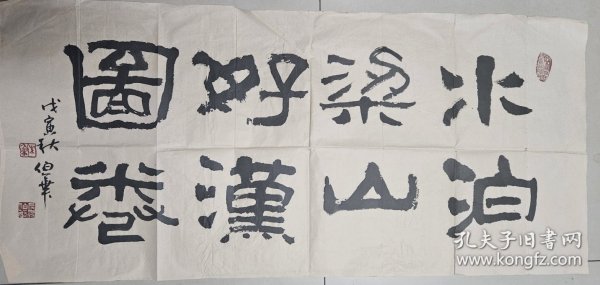 水泊
梁山
好漢
圖卷
戊寅秋
伯華
孔夫子旧书网
www.kongfz.com